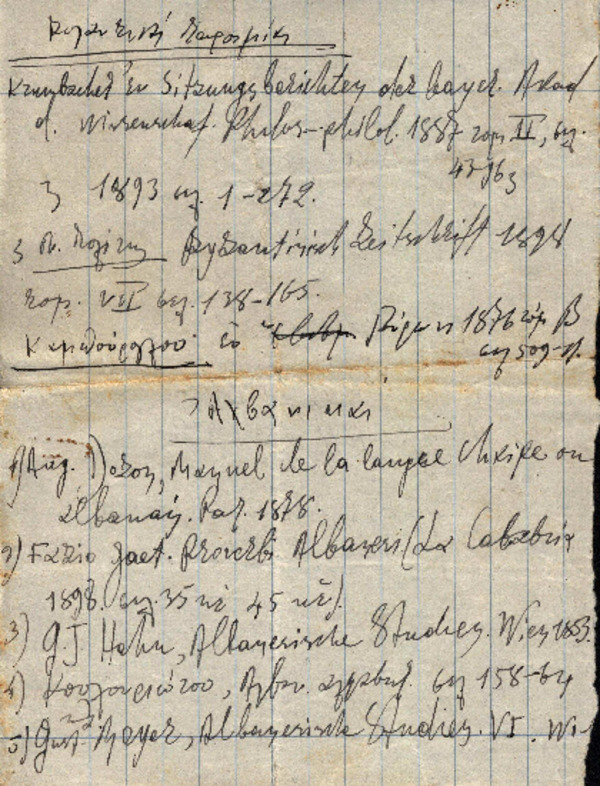 Βυζαντιναί Παροιμίαι
Krumbacher ἐν Sitzungsberichten der bayer. Akad
d. Wissenschaf. Philos-philol. 1887 τομ. II, σελ.
43-963
3 1893 σελ. 1-272.
3 Ν. Πολίτης Byzantinisch Zeitschrift 1898
τομ. VII σελ. 138-165.
Καμπούρογλου ἐν 1876 τόμ B
σελ 509-
Ἀλβανικαί
1) Aug. Dozon, Manuel de la langue Chkipe ou
albanais. Par. 1878.
2) Fazio Gaet. Proverbi Albanesi (La Calabria
1898. σελ. 35 καὶ 45 κἑ).
3) G.J Hahn, Albanesische Studien. Wien 1853.
4) Κουλουριώτου, Αλβαν. αλφαβητ. σελ 158-64
5) Gust. Meyer, Albanesische Studien. VI. Wi